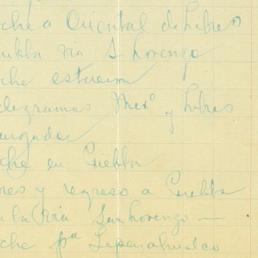 che a Oriental de Libres
uebla via S. Lorenzo
che
telegramas Mexº y Libres

che en Puebla
res y regreso a Puebla
la (via San Lorenzo —
che pª